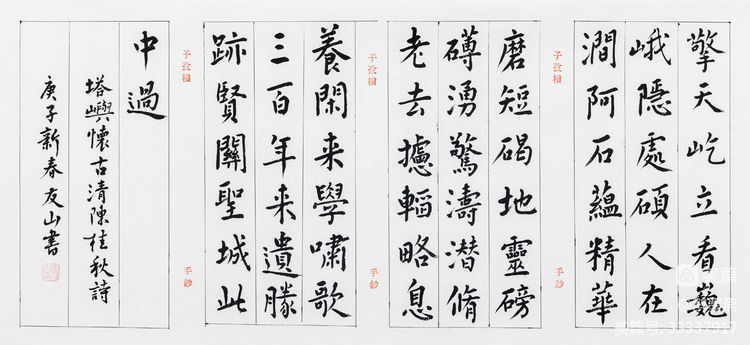 擎天屹立看巍
峨隱處碩人在
澗阿石蘊精華
子孜樓
手鈔
磨短碣地靈磅
礡湧驚濤潛脩
老去攄韜略息
子孜樓
手鈔
養閑来學嘯歌
三百年来遺勝
跡賢關聖城此
子孜樓
手鈔
中過
塔嶼懷古清陳桂秋詩
庚子新春友山書
美篇
美篇号: 31337917